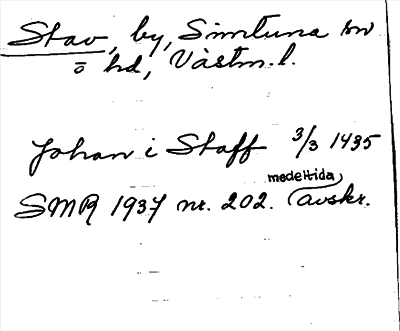 Stav, by, Simtuna sn
o hd, Västm. l.
Johan i Staff 3/3 1435
medeltida
SMR 1937 nr. 202. (avskr.